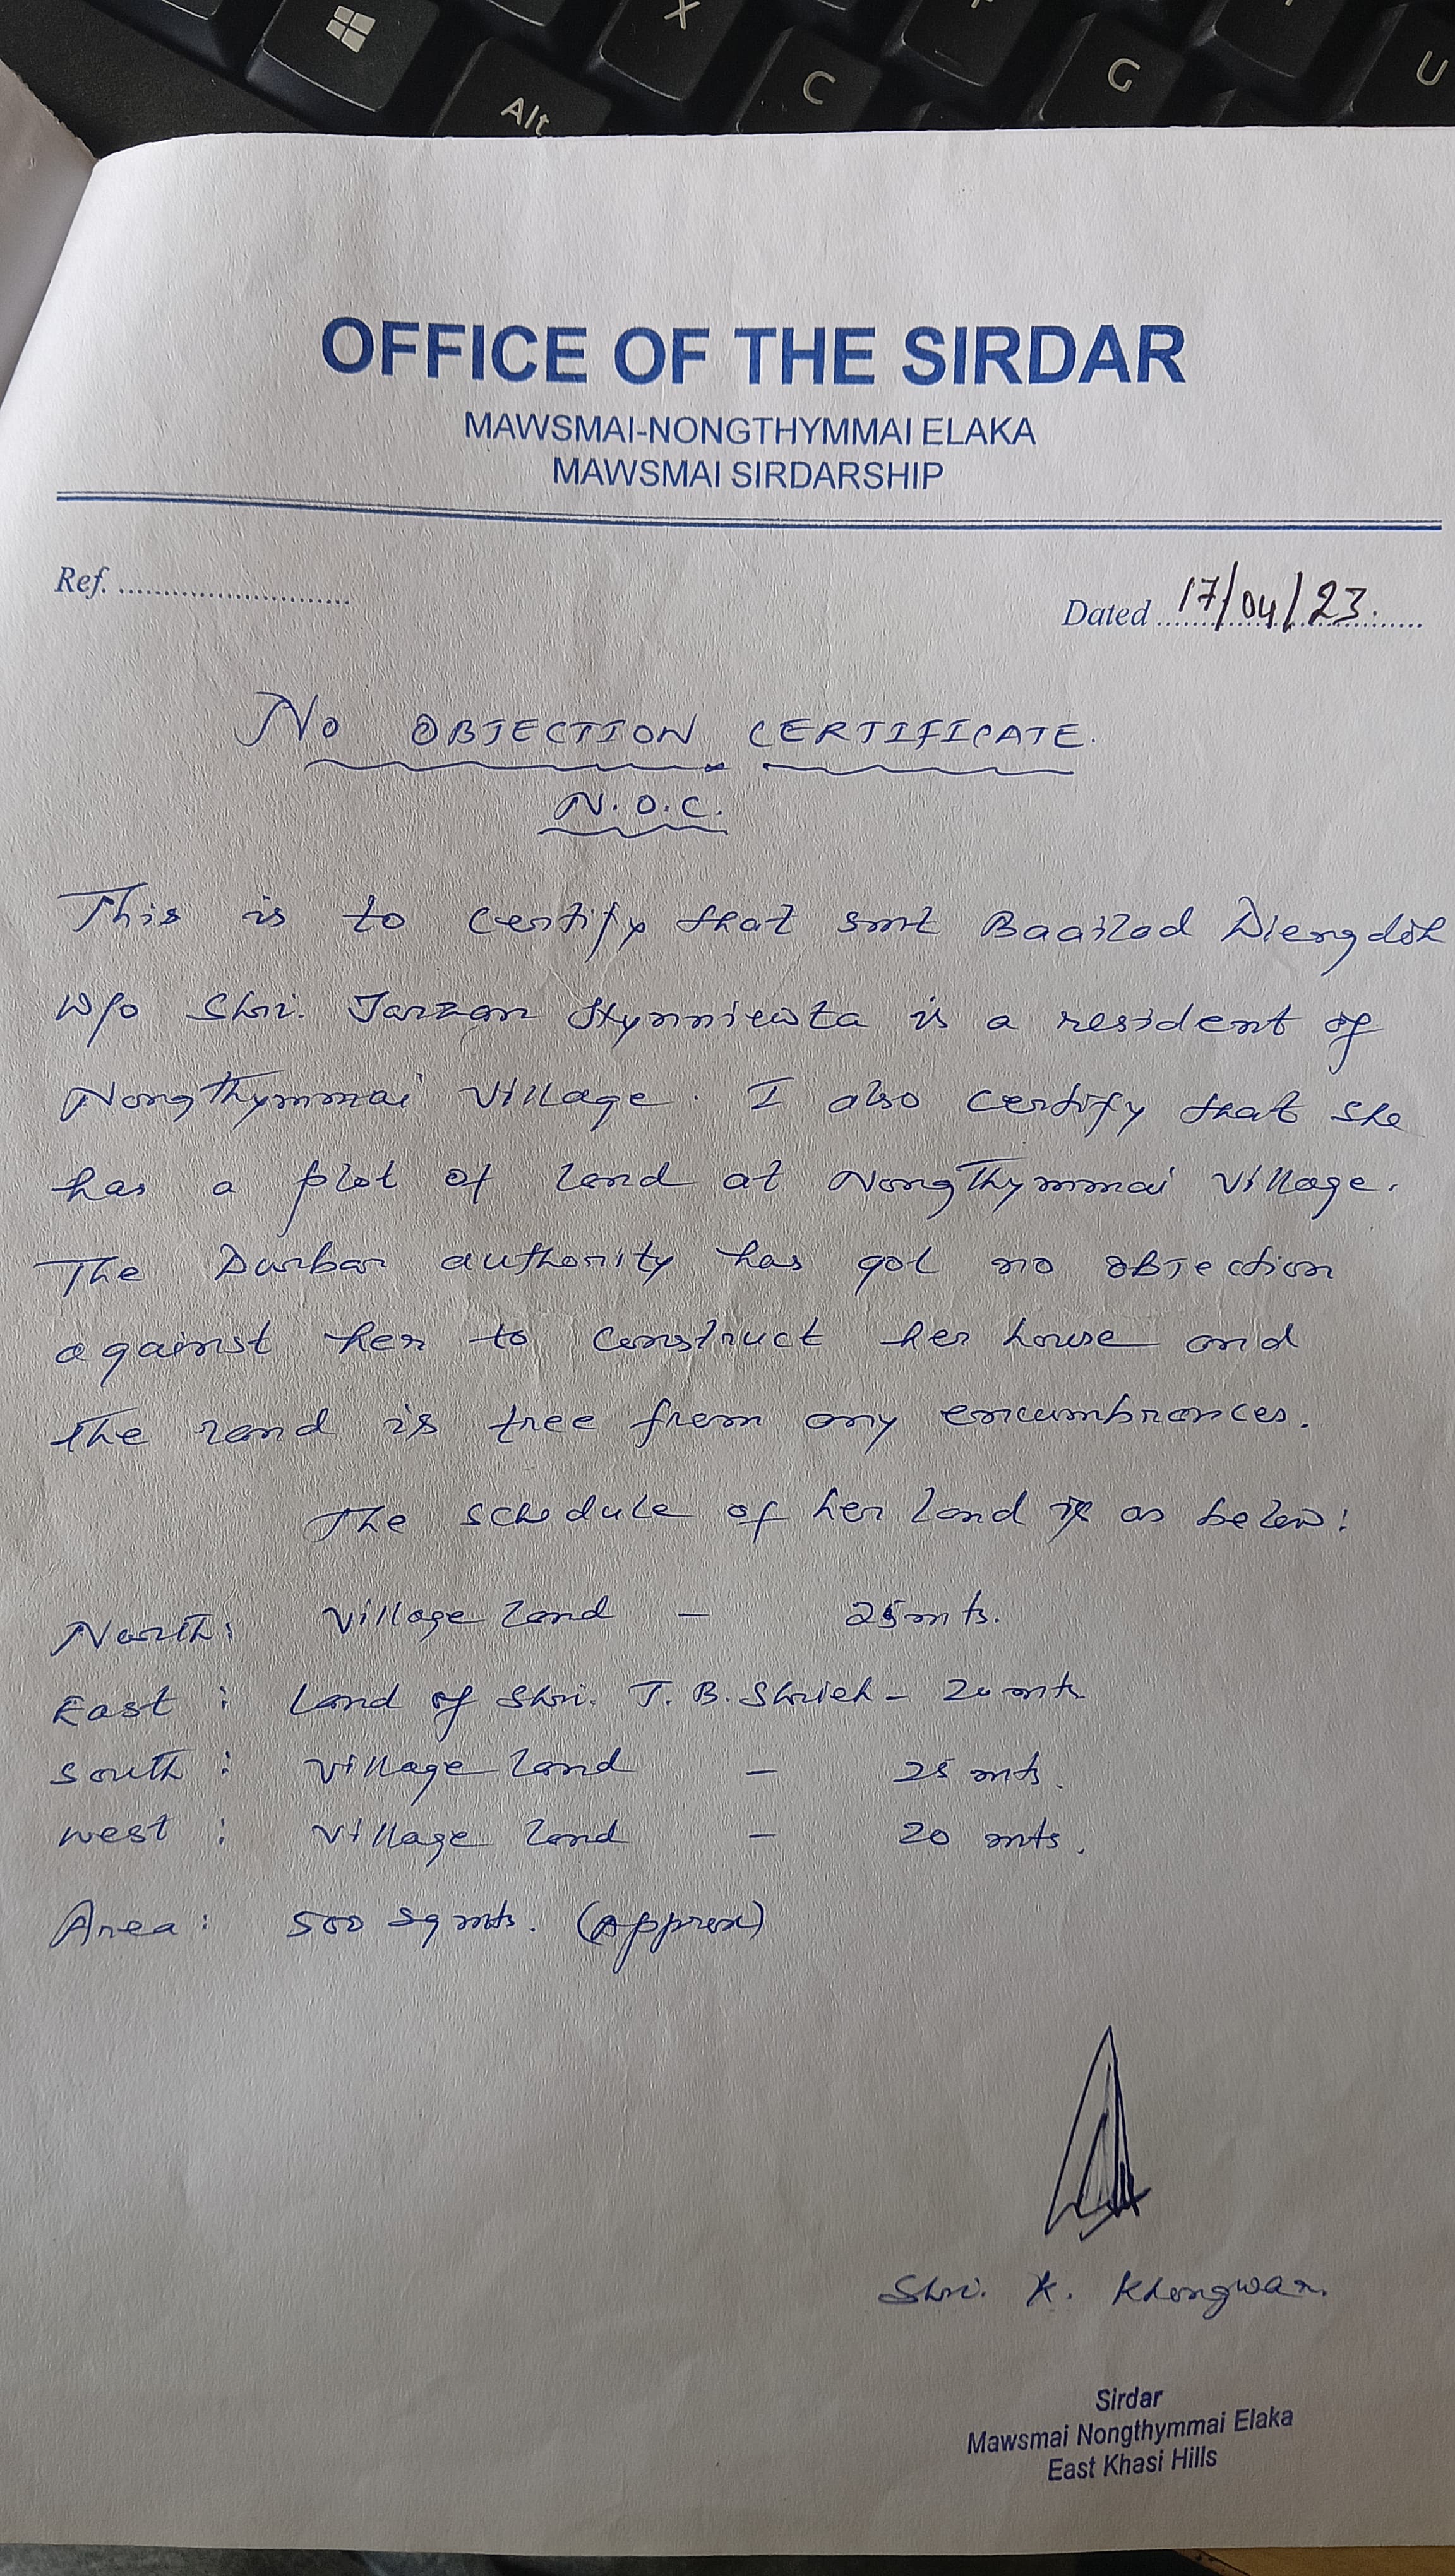 Alt
X
C
G
U
OFFICE OF THE SIRDAR
MAWSMAI-NONGTHYMMAI ELAKA
MAWSMAI SIRDARSHIP
Ref. ........................
Dated 17/04/23.
NO OBJECTION CERTIFICATE.
N.O.C.
This is to certify that smt Baailad Diengdoh
W/o Shri. Tarzan Hynniewta is a resident of
NongThymmai Village. I also certify that she
has a plot of land at NongThymmai Village.
The Durbar authority has got no objection
against her to construct her house and
the land is free from any encumbrances.
The schedule of her land is as below:
North: Village land - 25 mts.
East : Land of Shri. T. B. Shrieh - 20 mts
South : Village land - 25 mts.
West : Village land - 20 mts.
Area : 500 sq mts. (Approx)
Shri. K. Khongwar.
Sirdar
Mawsmai Nongthymmai Elaka
East Khasi Hills